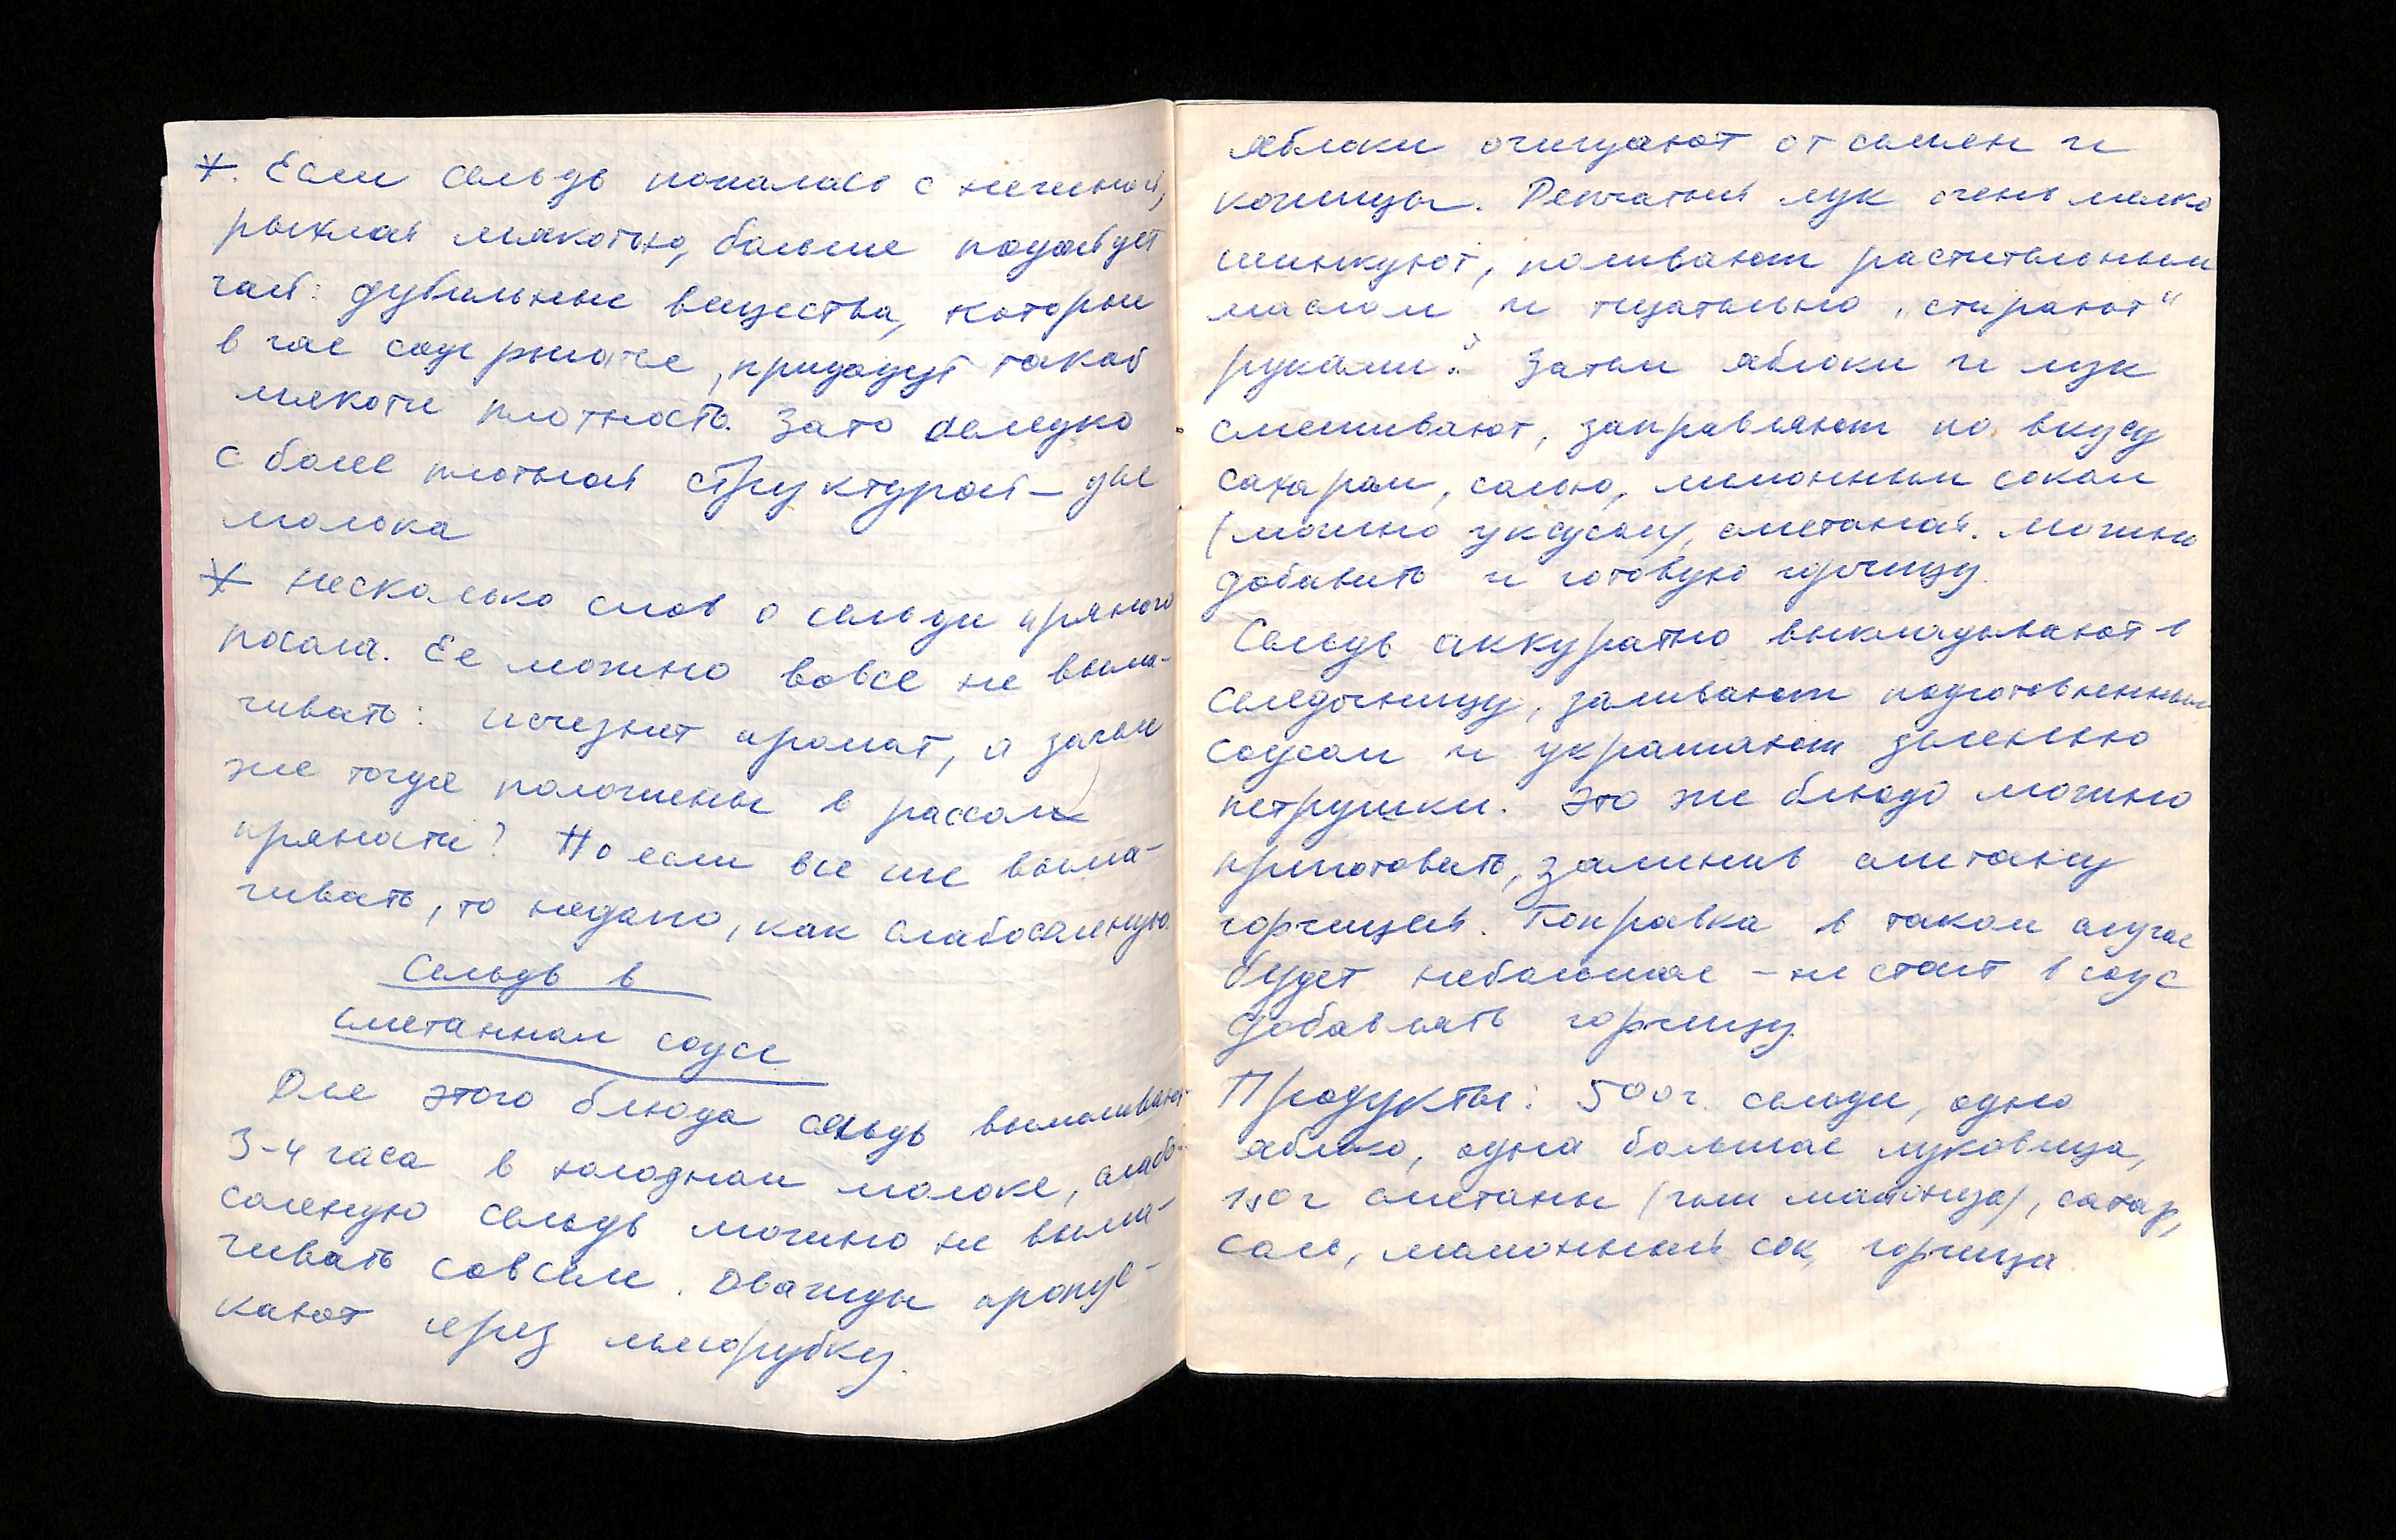 *. Если сельдь попалась с нежной,
рыхлой мякотью, больше подойдет
чай: дубильные вещества, которые
в чае содержатся, придадут такой
мякоти плотность. Зато селедко
с более плотной структурой – для
молока
* Несколько слов о сельди пряного
посола. Ее можно вовсе не выма-
чивать: исчезнет аромат, а зачем
же тогда положены в рассол
пряности? Но если все же выма-
чивать, то недолго, как слабосоленую.
Сельдь в
сметанном соусе
Для этого блюда сельдь вымачивают
3-4 часа в холодном молоке, слабо-
соленую сельдь можно не выма-
чивать совсем. Дважды пропус-
кают через мясорубку.
Яблоки очищают от семян и
кожицы. Репчатый лук очень мелко
шинкуют, поливают растительным
маслом и тщательно „стирают“
руками. Затем яблоки и лук
смешивают, заправляют по вкусу
сахаром, солью, лимонным соком
(можно уксусом), сметаной. Можно
добавить и готовую горчицу.
Сельдь аккуратно выкладывают в
селедочницу, заливают подготовленным
соусом и украшают зеленью
петрушки. Это же блюдо можно
приготовить, заменив сметану
горчицей. Поправка в таком случае
будет небольшая – не стоит в соус
добавлять горчицу.
Продукты: 500 г. сельди, одно
яблоко, одна большая луковица,
150 г сметаны (или майонеза), сахар,
соль, лимонный сок, горчица